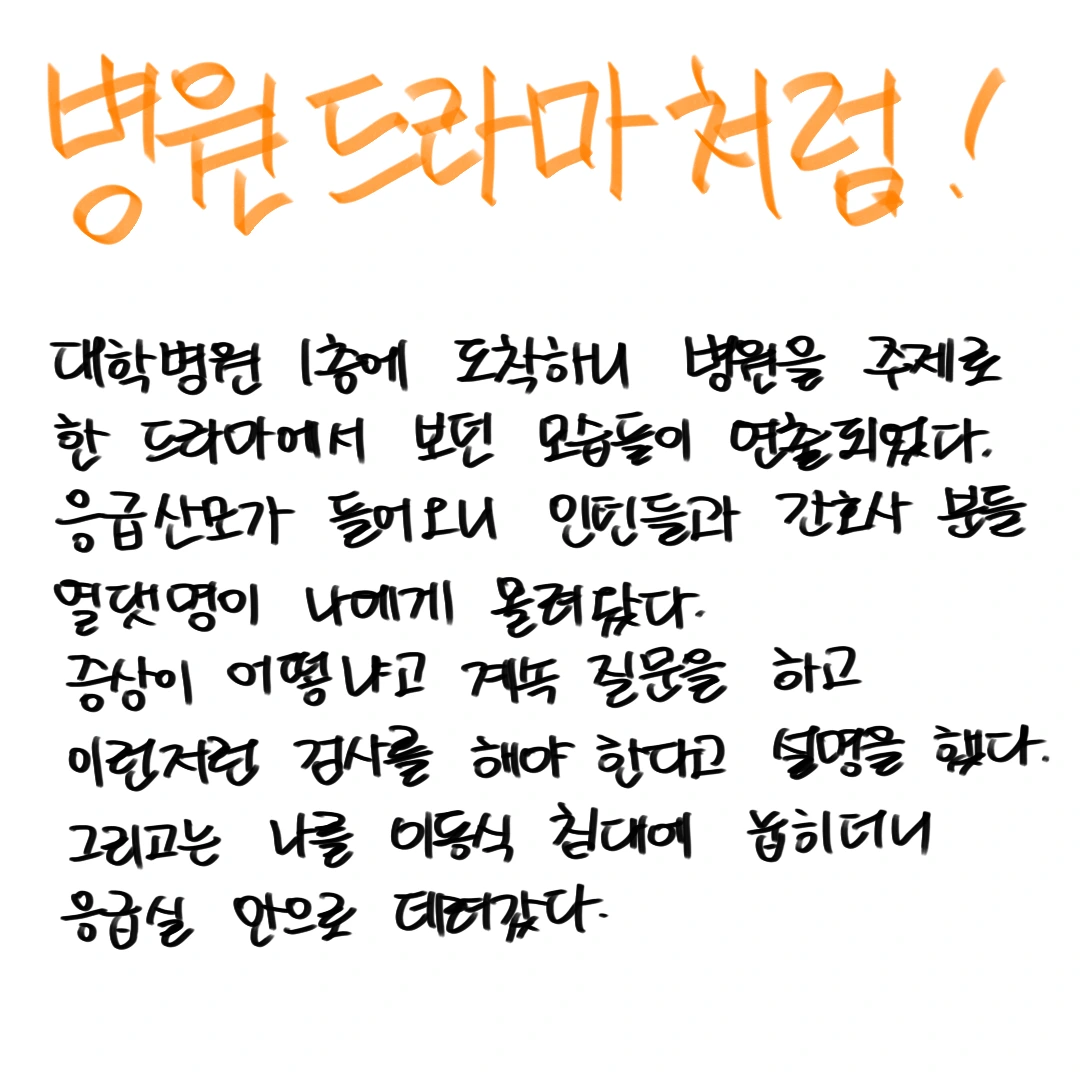 병원드라마처럼!
대학병원 1층에 도착하니 병원을 주제로
한 드라마에서 보던 모습들이 연출되었다.
응급산모가 들어오니 인턴들과 간호사 분들
열댓명이 나에게 몰려왔다.
증상이 어떻냐고 계속 질문을 하고
이런저런 검사를 해야 한다고 설명을 했다.
그리고는 나를 이동식 침대에 눕히더니
응급실 안으로 데려갔다.